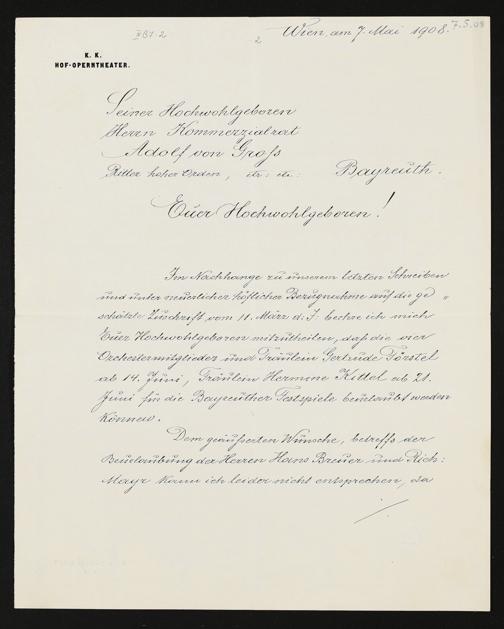 II B1.2
2
Wien, am 7. Mai 1908.
7.5.08
K. K.
HOF-OPERNTHEATER.
Seiner Hochwohlgeboren
Herrn Kommerzialrat
Adolf von Groß
Ritter hoher Orden, etc: etc: Bayreuth.
Euer Hochwohlgeboren!
Im Nachhange zu unserem letzten Schreiben
und unter neuerlicher höflicher Bezugnahme auf die ge„
schätzte Zuschrift vom 11. März d. J: beehre ich mich
Euer Hochwohlgeboren mitzutheilen, daß die vier
Orchestermitglieder und Fräulein Gertrude Förstel
ab 14. Juni, Fräulein Hermine Kittel ab 21.
Juni für die Bayreuther Festspiele beurlaubt werden
können.
Dem geäußerten Wunsche, betreffs der
Beurlaubung der Herren Hans Breuer und Rich:
Mayr kann ich leider nicht entsprechen, da
./.